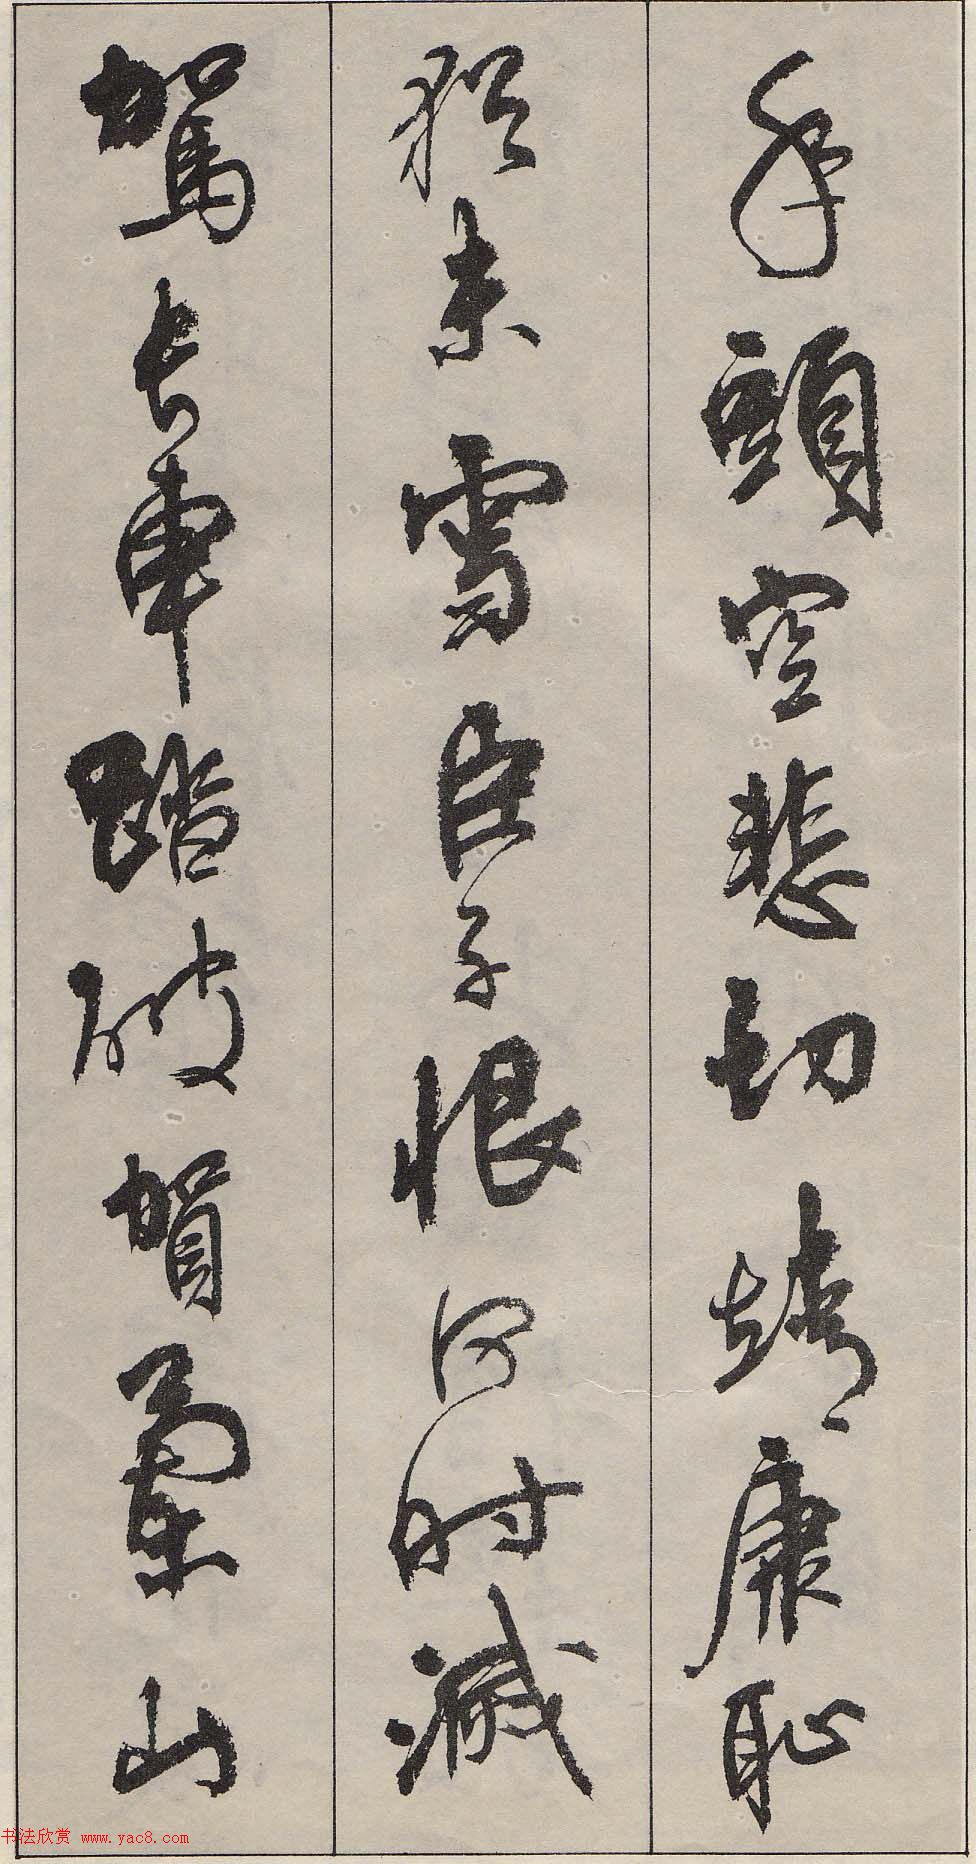 年頭空悲切靖康恥
猶未雪臣子恨何時滅
駕長車踏破賀蘭山
书法欣赏 www.yac8.com